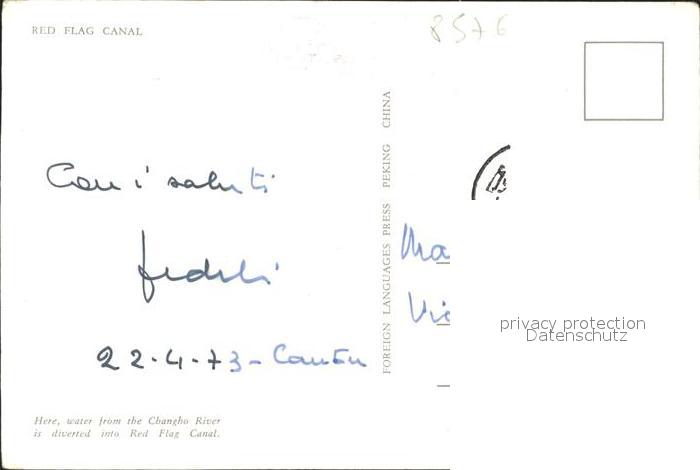 RED FLAG CANAL
8576
Con i saluti
fedeli
22.4.73 - Canton
Here, water from the Changho River
is diverted into Red Flag Canal.
FOREIGN LANGUAGES PRESS PEKING CHINA
Ma
Via
privacy protection
Datenschutz